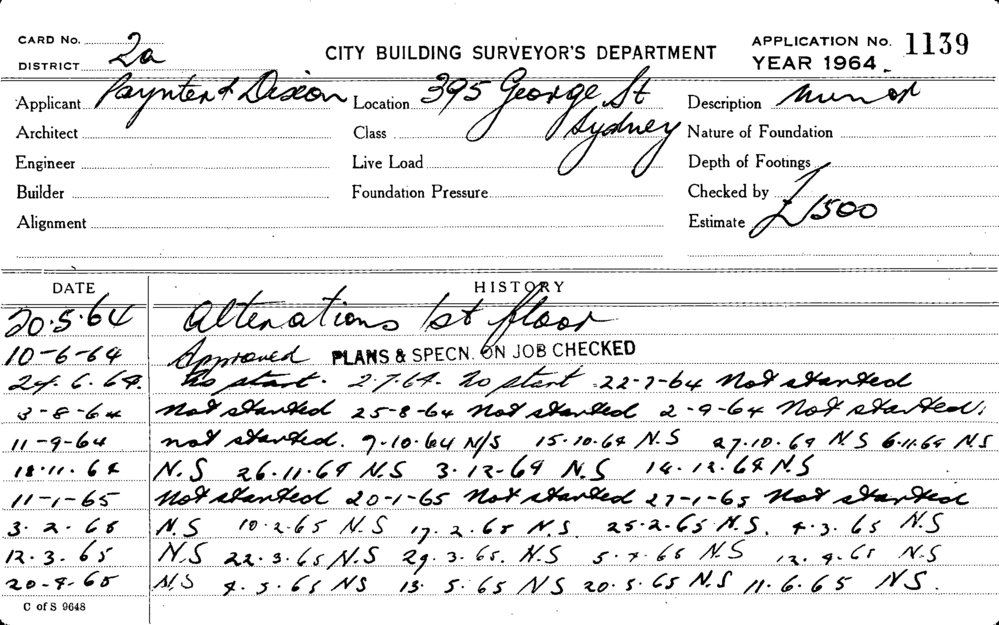 CARD No.
DISTRICT 2a
CITY BUILDING SURVEYOR'S DEPARTMENT
APPLICATION No. 1139
YEAR 1964.
Applicant Paynter & Dixon Location 395 George St Sydney Description Minor
Architect Class Nature of Foundation
Engineer Live Load Depth of Footings
Builder Foundation Pressure Checked by
Alignment Estimate £1500
DATE HISTORY
20.5.64 Alterations 1st floor
10-6-64 Approved PLANS & SPECN. ON JOB CHECKED
24.6.64. No start. 2.7.64. No start 22-7-64 Not started
3-8-64 Not started 25-8-64 Not started 2-9-64 Not started.
11-9-64 not started. 7-10-64 N/S 15.10.64 N.S 27.10.64 N.S 6.11.64 N.S
18.11.64 N.S 26.11.64 N.S 3.12-64 N.S 14.12.64 N.S
11-1-65 Not started 20-1-65 Not started 27-1-65 Not started
3.2.65 N.S 10.2.65 N.S 17.2.65 N.S. 25.2.65 N.S. 4.3.65 N.S
12.3.65 N.S 22.3.65 N.S 29.3.65. N.S 5.4.65 N.S 12.4.65 N.S
20.4.65 N.S 4.5.65 NS 13.5.65 NS 20.5.65 N.S 11.6.65 NS.
C of S 9648